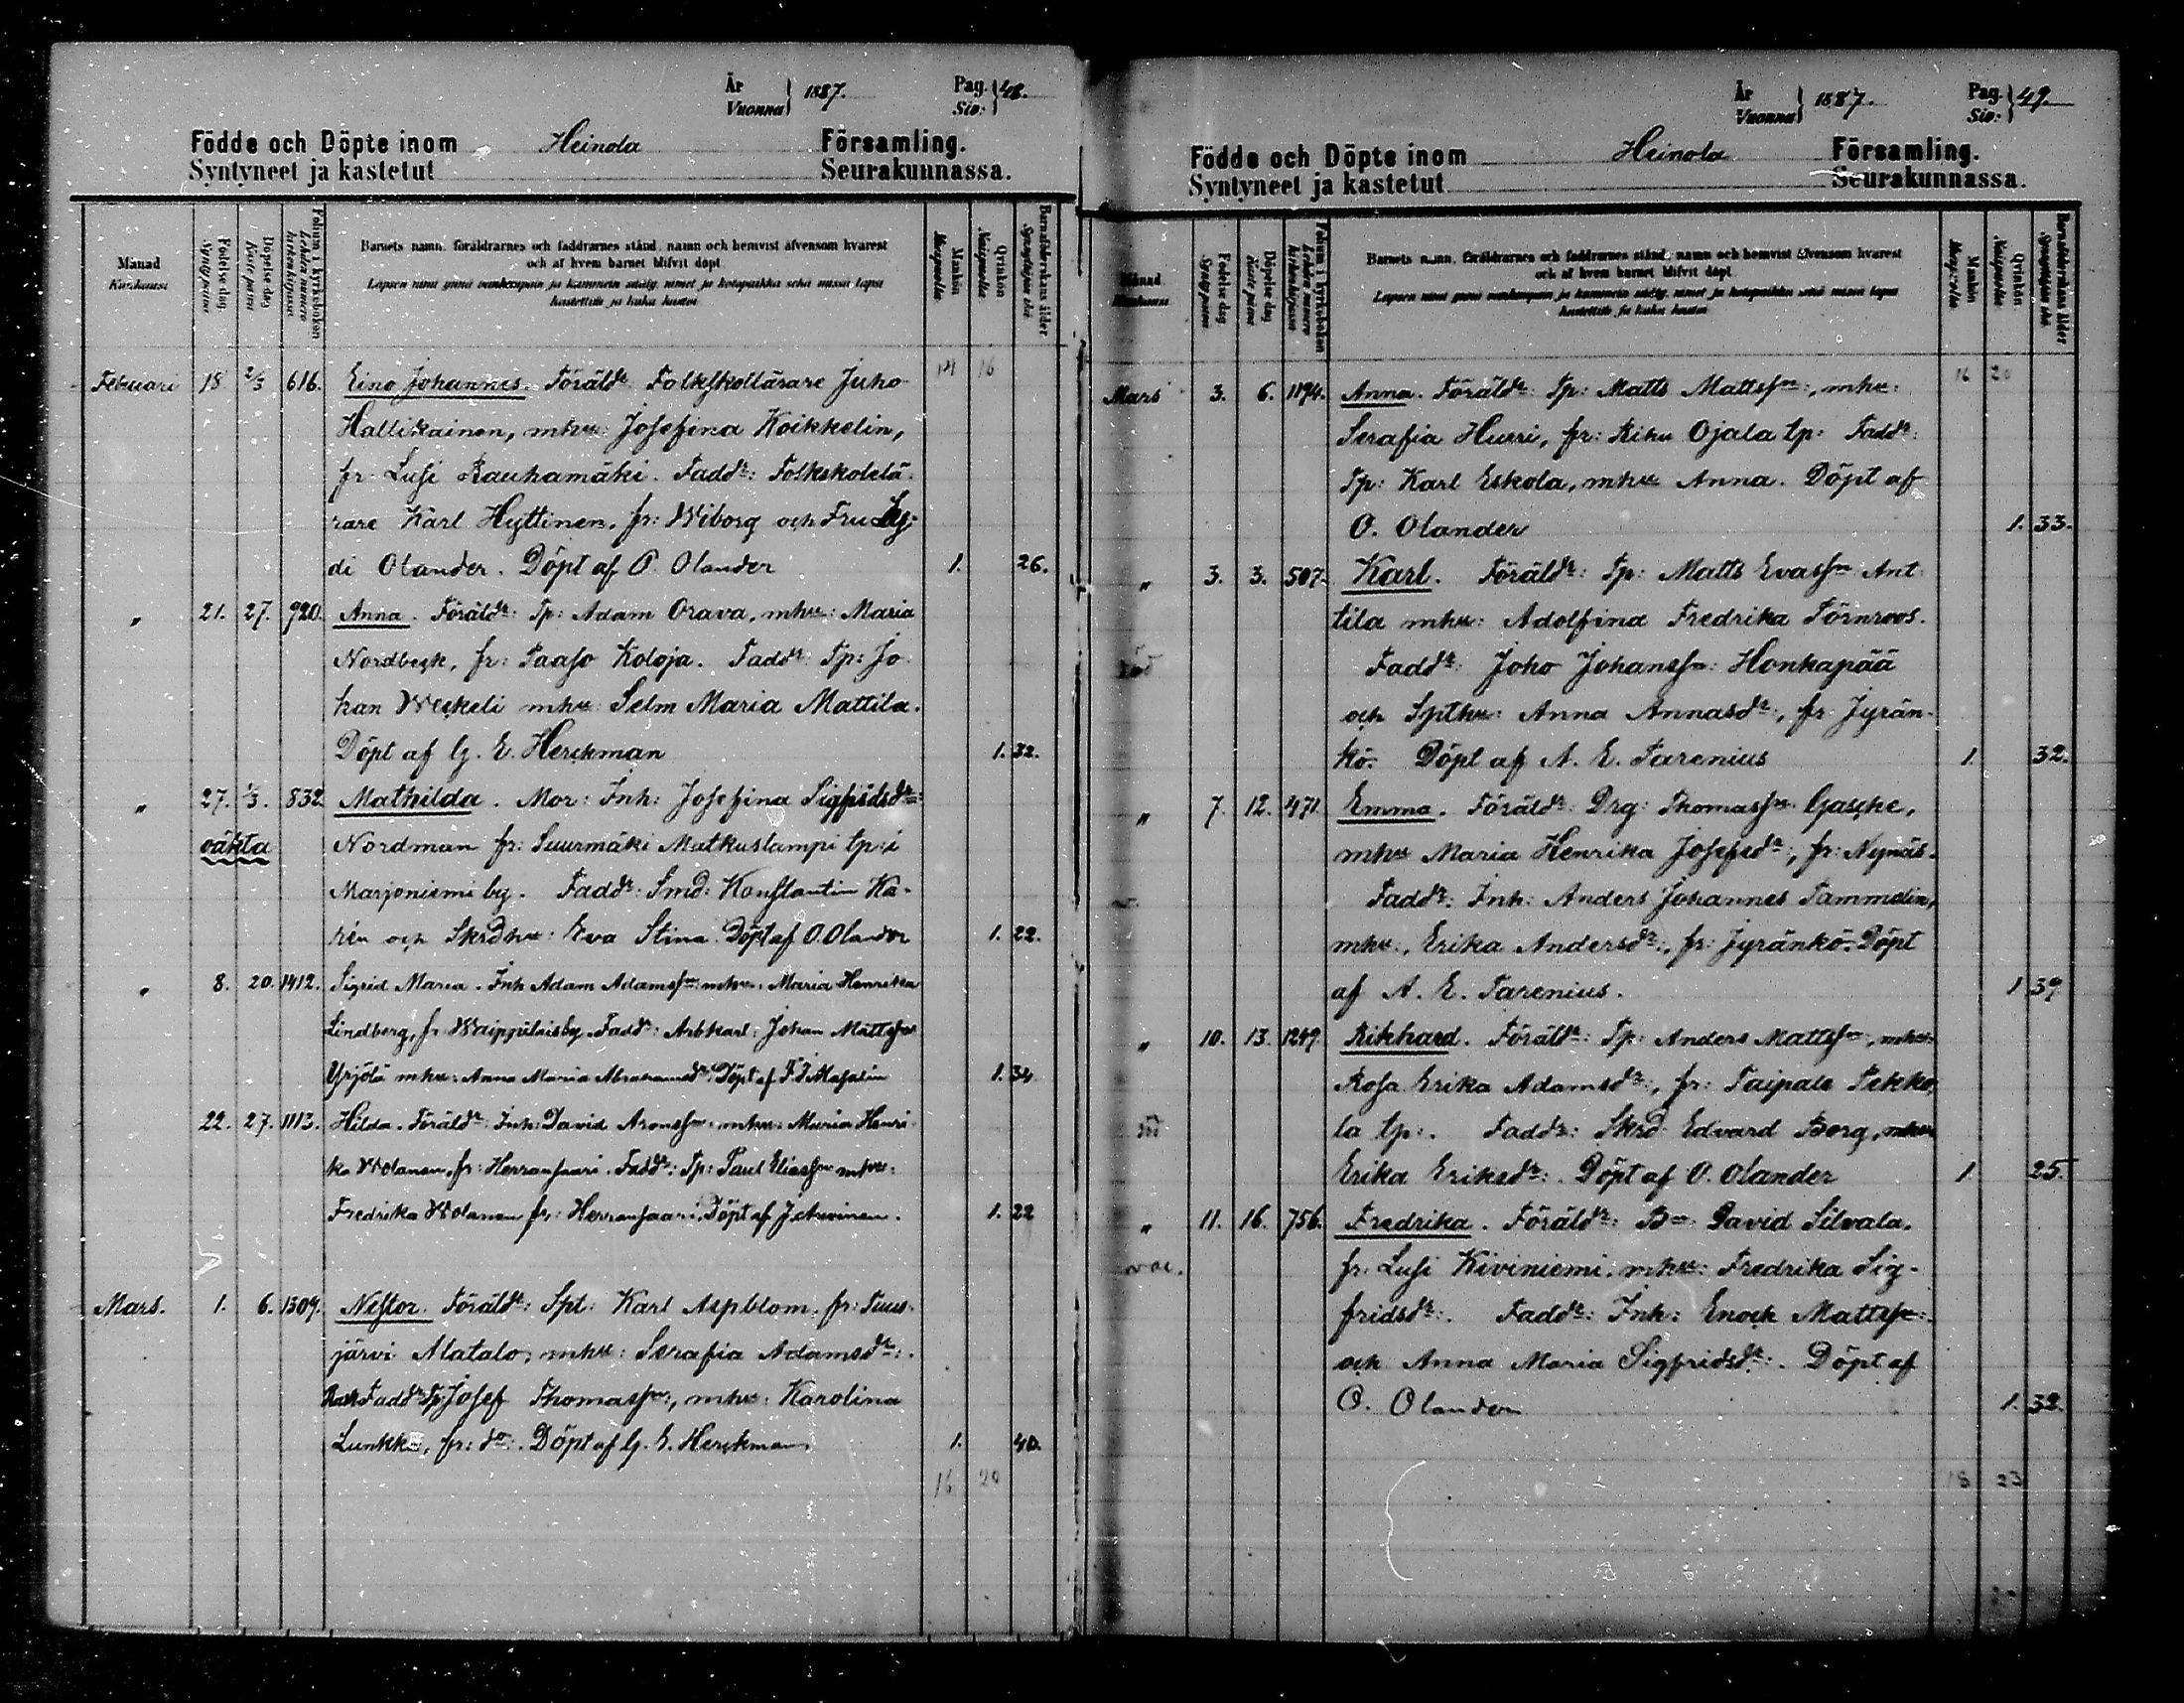 År Vuonna } 1887. Pag. Siv: } 48.
Födde och Döpte inom Heinola Församling.
Syntyneet ja kastetut Seurakunnassa.
Månad Kuukausi
Födelse dag Syntypäivä
Döpelse dag Kaste päivä
Folium i kyrkoboken Lehden numero kirkonkirjassa
Barnets namn, föräldrarnes och faddrarnes stånd, namn och hemvist äfvensom hvarest
och af hvem barnet blifvit döpt.
Mankön Miespuolta
Qvinkön Naispuolta
Barnaföderskans ålder Synnyttäjän ikä
14 16
Februari 18 2/3 616. Eino Johannes. Föräldr: Folkskollärare Juho
Hallikainen, mhu: Josefina Koikkelin,
fr Lusi Rauhamäki. Faddr: Folkskolelä-
rare Karl Hyttinen, fr: Wiborg och Fru Ly-
di Olander. Döpt af O. Olander 1. 26.
" 21. 27. 920. Anna. Föräldr: Tp: Adam Orava, mhu: Maria
Nordbeck, fr: Taaso Koloja. Faddr Tp: Jo-
han Weckeli mhu: Selm Maria Mattila.
Döpt af G. E. Herckman 1. 32.
" 27. 1/3. 832. Mathilda. Mor: Inh: Josefina Sigfridsdr:
oäkta Nordman fr: Suurmäki Matkuslampi tp: i
Marjoniemi by. Faddr: Smd: Konstantin Ka-
rén och Skrdhu: Eva Stina. Döpt af O. Olander 1. 22.
" 8. 20. 1412. Sigrid Maria. Inh Adam Adamssn: mhu: Maria Henrika
Lindberg, fr Waippilaisby. Faddr: Arbkarl: Johan Mattssn
Yrjölä mhu: Anna Maria Abrahamsdr: Döpt af F. J. Masalin 1. 34
22. 27. 1113. Hilda. Föräldr: Inh: David Aronssn: mhu: Maria Henri-
ka Wolanen, fr: Herransaari. Faddr: Tp: Paul Eliassn mhu:
Fredrika Wolanen fr: Herransaari. Döpt af J. Arvinen. 1. 22
Mars. 1. 6. 1309. Nestor. Föräldr: Spt: Karl Aspblom, fr: Tuus-
järvi Alatalo, mhu: Serafia Adamsdr:.
Faddr Tp: Josef Thomassn:, mhu: Karolina
Lunkka, fr: do:. Döpt af G. E. Herckman. 1. 40.
16 20
År Vuonna } 1887. Pag. Siv: } 49.
Födde och Döpte inom Heinola Församling.
Syntyneet ja kastetut Seurakunnassa.
Månad Kuukausi
Födelse dag Syntypäivä
Döpelse dag Kaste päivä
Folium i kyrkoboken Lehden numero kirkonkirjassa
Barnets namn, föräldrarnes och faddrarnes stånd, namn och hemvist äfvensom hvarest
och af hvem barnet blifvit döpt.
Mankön Miespuolta
Qvinkön Naispuolta
Barnaföderskans ålder Synnyttäjän ikä
16 20
Mars 3. 6. 1194. Anna. Föräldr: Tp: Matts Mattssn:, mhu:
Serafia Hurri, fr: Riku Ojala tp: Faddr:
Tp: Karl Eskola, mhu Anna. Döpt af
O. Olander 1. 33.
" 3. 3. 507. Karl. Föräldr: Tp: Matts Evassn Ant
tila mhu: Adolfina Fredrika Törnroos.
Faddr: Joho Johanssn: Honkapää
och Spthu: Anna Annasdr:, fr Jyrän-
kö. Döpt af A. E. Tarenius 1. 32.
" 7. 12. 471. Emma. Föräldr: Drg: Thomassn Gasche,
mhu Maria Henrika Josefsdr:, fr: Nynäs.
Faddr: Inh: Anders Johannes Tammelin,
mhu:, Erika Andersdr:, fr: Jyränkö. Döpt
af A. E. Tarenius. 1 39
" 10. 13. 1249. Rikhard. Föräldr: Tp: Anders Mattssn:, mhu:
Rosa Erika Adamsdr:, fr: Taipale Pekko
la tp:. Faddr: Skrd Edvard Borg, mhu
Erika Eriksdr:. Döpt af O. Olander 1 25.
" 11. 16. 756. Fredrika. Föräldr: Bn: David Silvala,
fr: Lusi Kiviniemi. mhu: Fredrika Sig-
fridsdr:. Faddr: Inh: Enock Mattssn:
och Anna Maria Sigfridsdr:. Döpt af
O. Olander 1. 32.
18 23